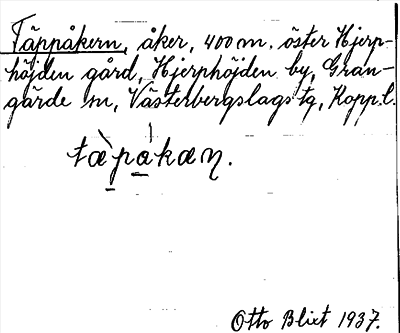 Täppåkern, åker, 400 m. öster Hjerp-
höjden gård, Hjerphöjden by, Gran-
gärde sn, Västerbergslags tg, Kopp.l.
tæ̀pakæn.
Otto Blixt 1937.